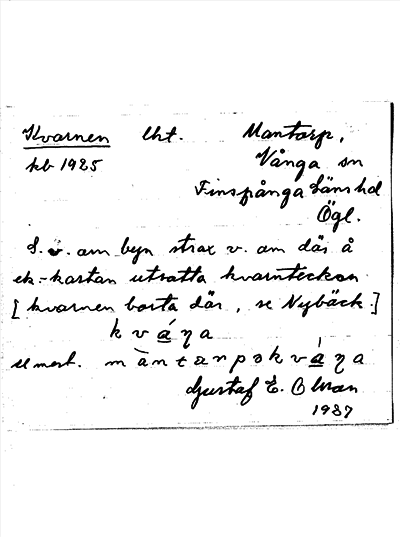 Kvarnen lht. Mantorp,
kb 1925 Vånga sn
Finspånga läns hd
Ögl.
S. ö. om byn strax v. om där å
ek.-kartan utsatta kvarntecken
[kvarnen borta där, se Nybäck.]
kváŋa
mantorpəkváŋa
Gustaf E. Olsson
1937